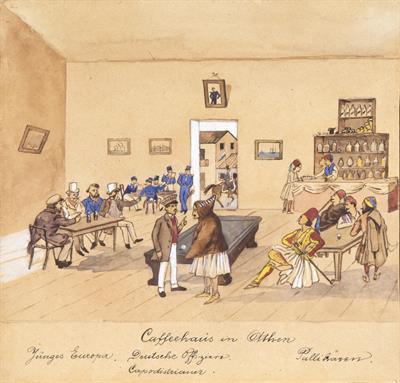 Caffeehaus in Athen
Junges Europa. Deutsche Offiziere. Pallikaren.
Capodistrianer.